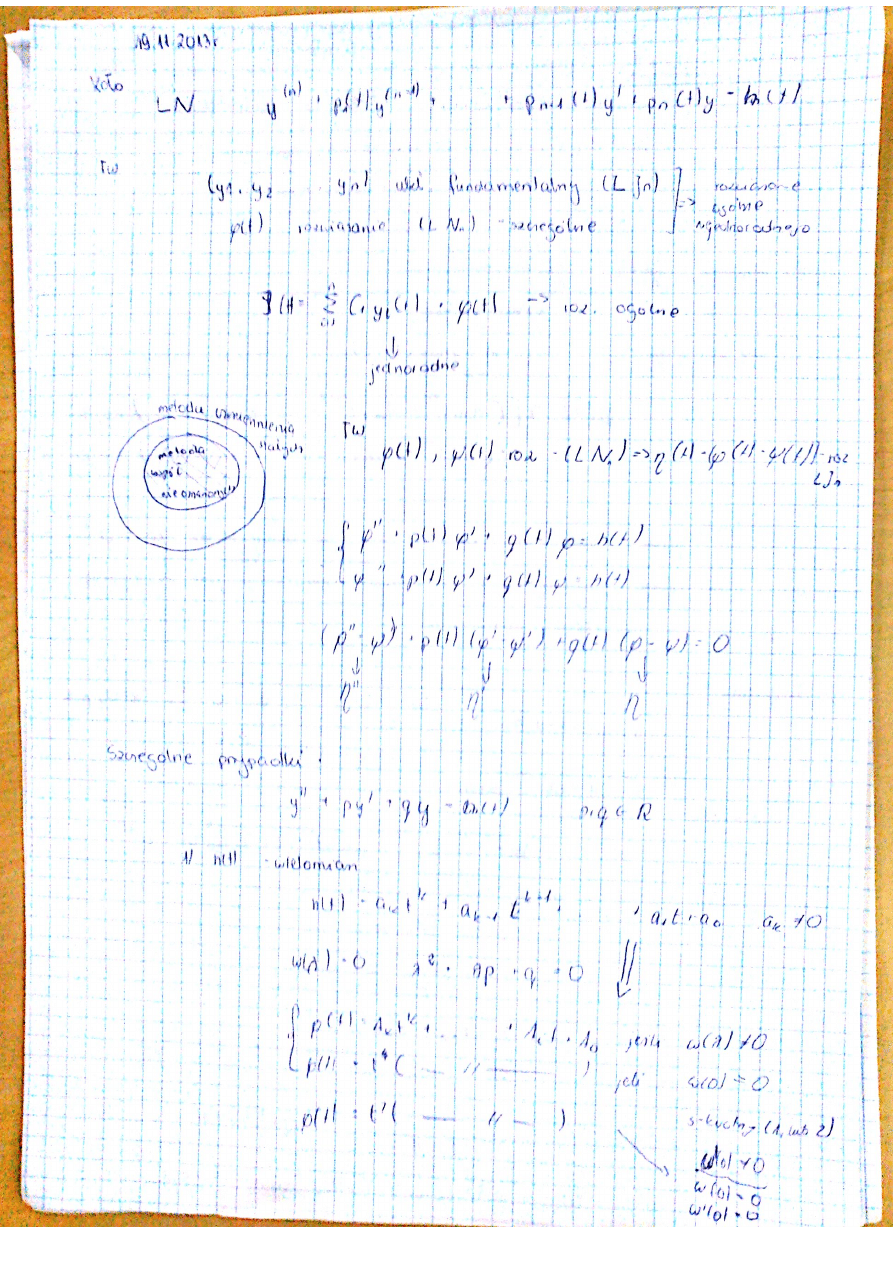 19.11.2013r
Koło
LN y^(n) + p_1(t) y^(n-1) + + p_n-1(t) y' + p_n(t) y = h(t)
Tw
(y1, y2 ... yn) układ fundamentalny (LJn) ] => rozwiązanie
φ(t) rozwiązanie (LNn) szczególne ] ogólne
niejednorodnego
(t) = Σ Ci yi(t) + φ(t) -> roz. ogólne
↓
jednorodne
metoda uzmienniania
stałych
metoda
współ.
nieoznaczonych
Tw
φ(t), ψ(t) roz - (LNn) => η(t) = (φ(t) - ψ(t)) - roz
LJn
{ φ'' + p(t) φ' + q(t) φ = h(t)
ψ'' + p(t) ψ' + q(t) ψ = h(t)
(φ'' - ψ'') + p(t) (φ' - ψ') + q(t) (φ - ψ) = 0
↓ ↓ ↓
η'' η' η
Szczególne przypadki
y'' + py' + qy = h(t) p,q ∈ R
1) h(t) - wielomian
h(t) = a_k t^k + a_k-1 t^k-1 + + a_1 t + a_0 a_k ≠ 0
w(λ) = 0 λ² + λp + q = 0
⇓
{ φ(t) = A_k t^k + ... + A_1 t + A_0 jeśli w(λ) ≠ 0
φ(t) = t^s ( — // — ) jeśli w(0) = 0
φ(t) = t' ( — // — ) s-krotny (1 lub 2)
w'(0) ≠ 0
w(0) = 0
w'(0) = 0